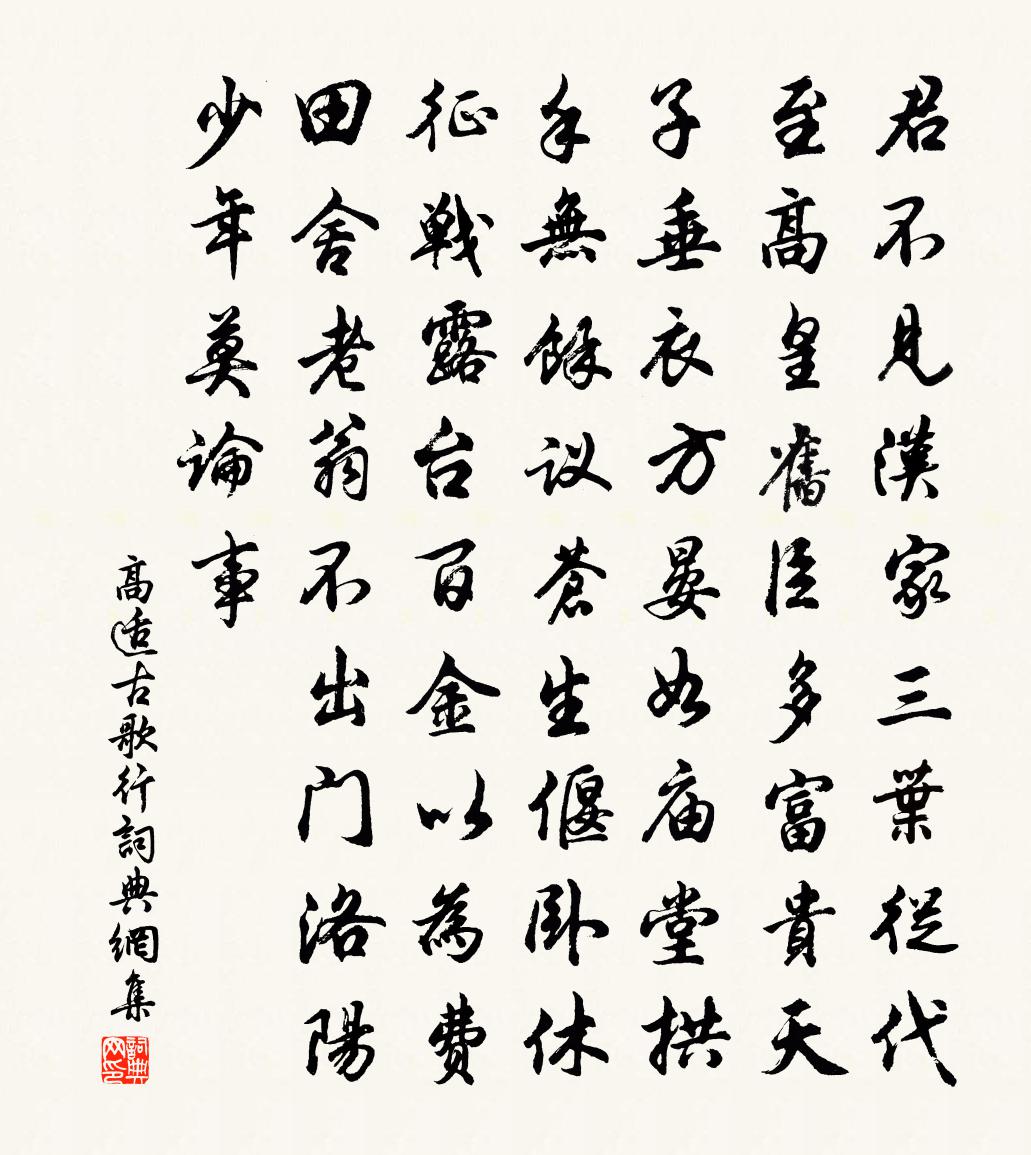 君不見漢家三葉從代
至高皇舊臣多富貴天
子垂衣方晏如庙堂拱
手無餘议蒼生偃卧休
征戦露台百金以為费
田舍老翁不出门洛陽
少年莫論事
高适古歌行詞典網集
詞典网印